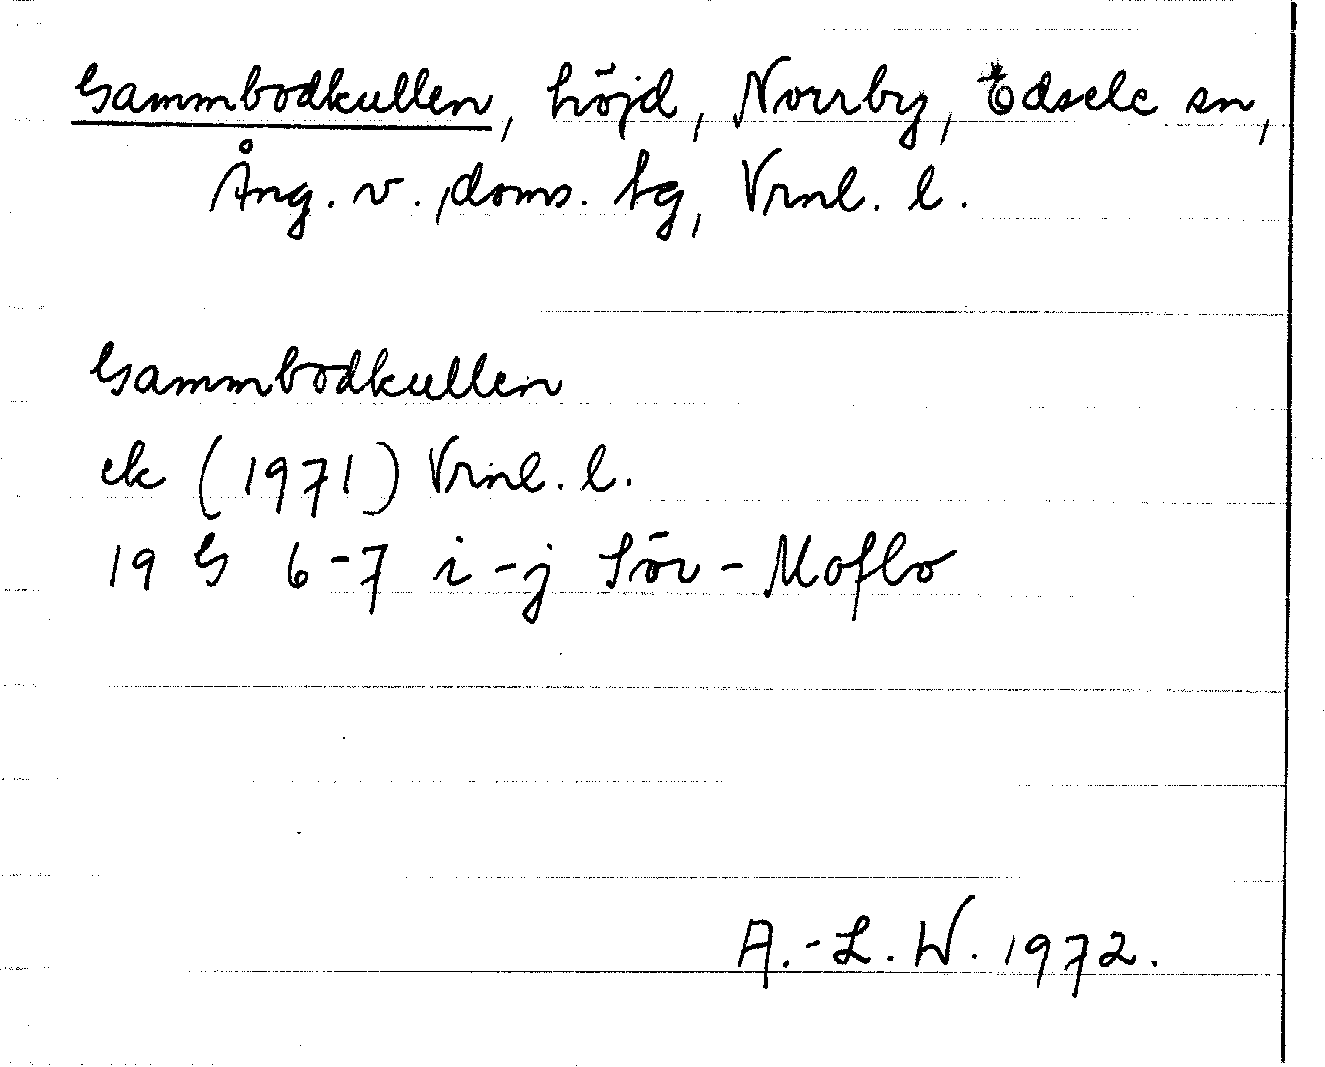 Gammbodkullen, höjd, Norrby, Edsele sn,
Ång. v. doms. tg, Vrnl. l.
Gammbodkullen
ek (1971) Vrnl. l.
19 G 6-7 i-j Sör-Moflo
A.-L. W. 1972.